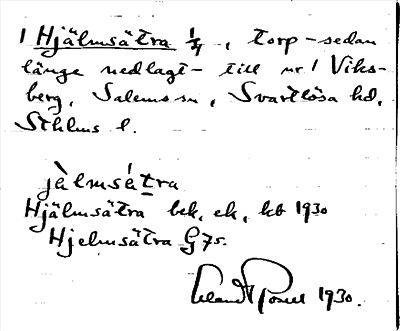 1 Hjälmsätra 1/4, torp - sedan
länge nedlagt - till nr 1 Viks-
berg, Salems sn, Svartlösa hd,
Sthlms l.
jàlmsátra
Hjälmsätra bek, ek, kb 1930
Hjelmsätra G 75.
1930.